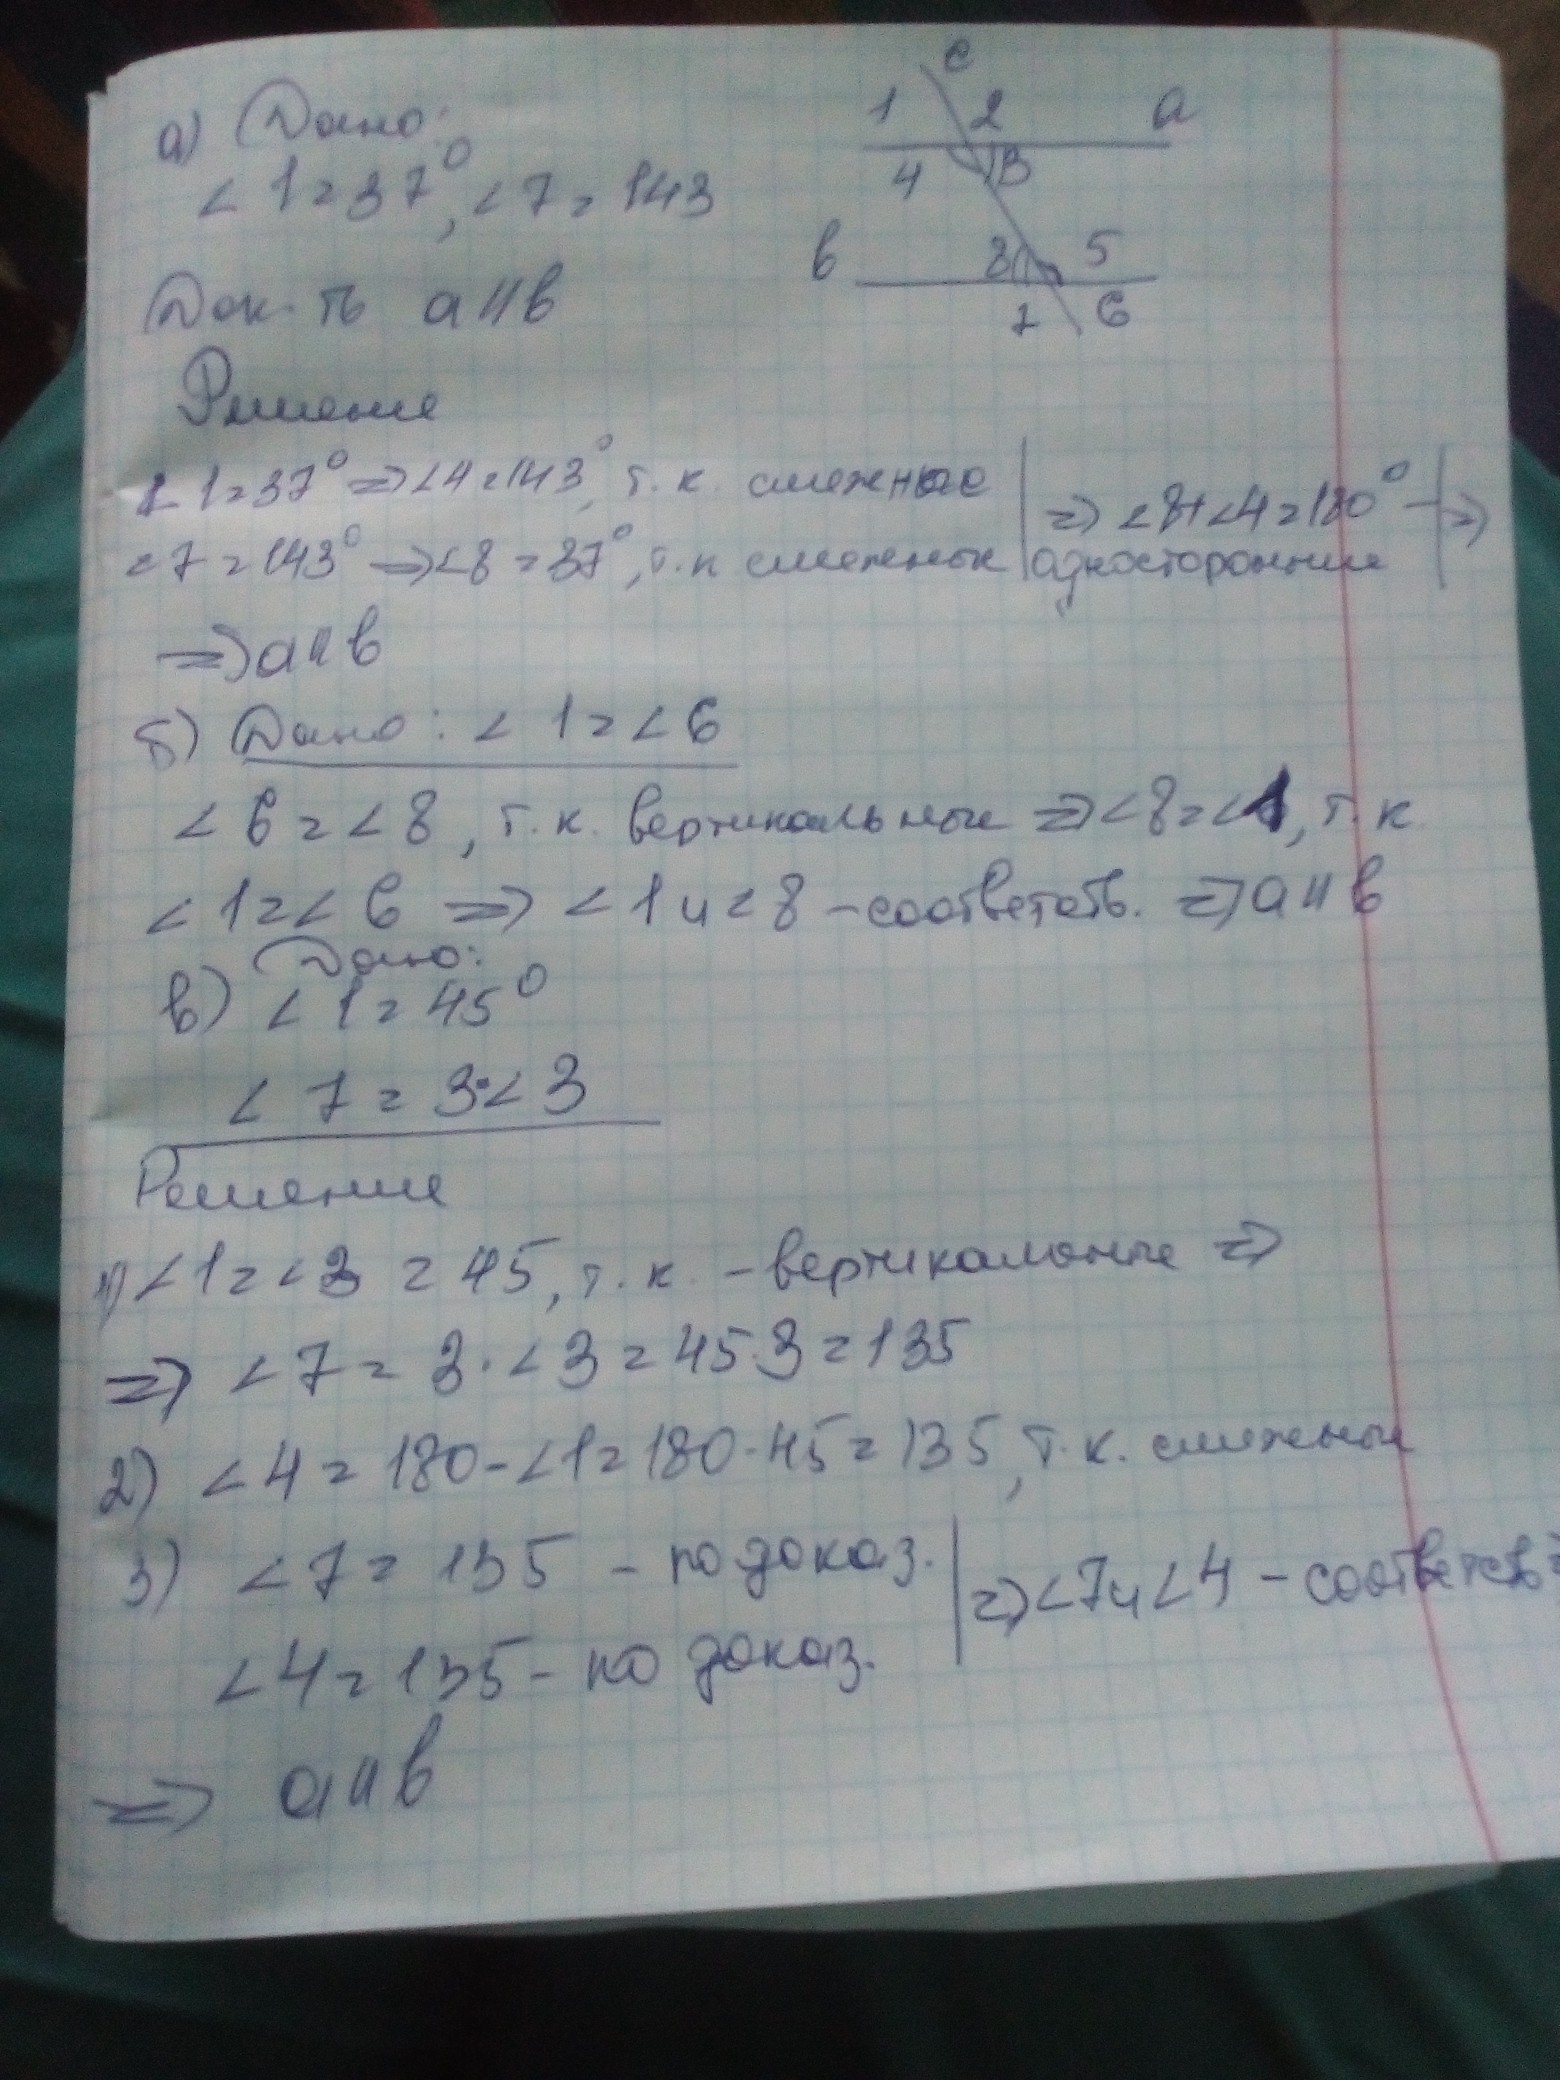 а) Дано:
<1=37°, <7=143
Док-ть a||b
c
1 2 a
4 3
b 8 5
7 6
Решение
<1=37° => <4=143°, т.к. смежные | => <8+<4=180° | =>
<7=143° => <8=37°, т.к смежные | односторонние
=> a||b
б) Дано: <1=<6
<6=<8, т.к. вертикальные => <8=<1, т.к
<1=<6 => <1 и <8 - соответств. => a||b
Дано:
в) <1=45°
<7=3·<3
Решение
1) <1=<3=45, т.к. - вертикальные =>
=> <7=3·<3=45·3=135
2) <4=180-<1=180-45=135, т.к. смежные
3) <7=135 - по доказ. | => <7 и <4 - соответств =
<4=135 - по доказ.
=> a||b